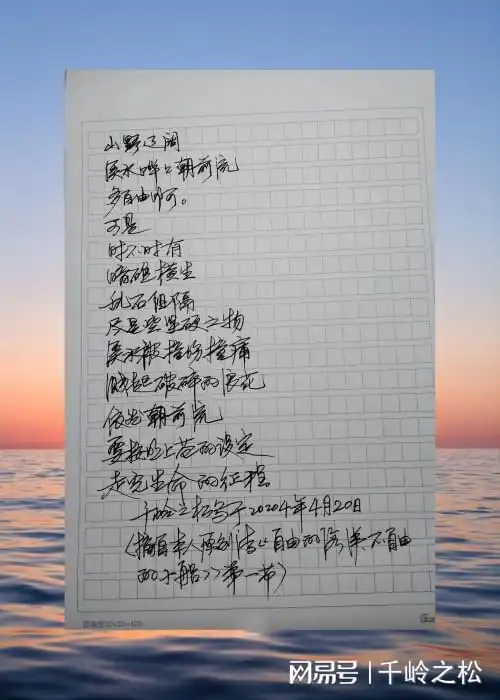 山野辽阔
溪水哗哗朝前流
多自由啊。
可是
时不时有
暗礁横生
乱石阻隔
尽是坚硬之物
溪水被撞伤撞痛
溅起破碎的浪花
依然朝前流
要按照上苍的设定
走完生命的征程
千岭之松写于2024年4月20日
(摘自本人原创诗《自由的海洋不自由
的小船》第一节)
网易号 | 千岭之松